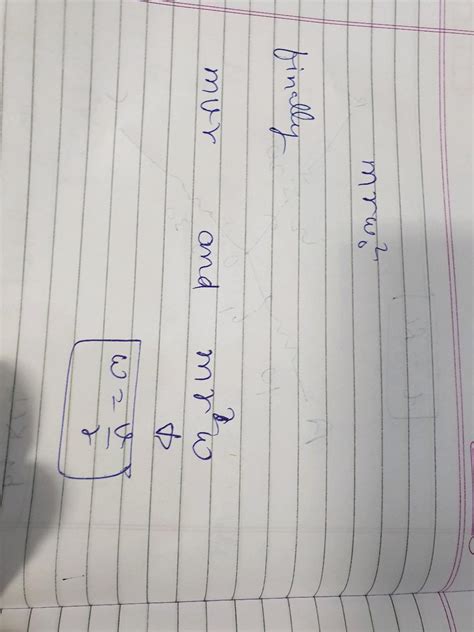 mrω₀²
finally
mvr and mr²ω
ω = v/r